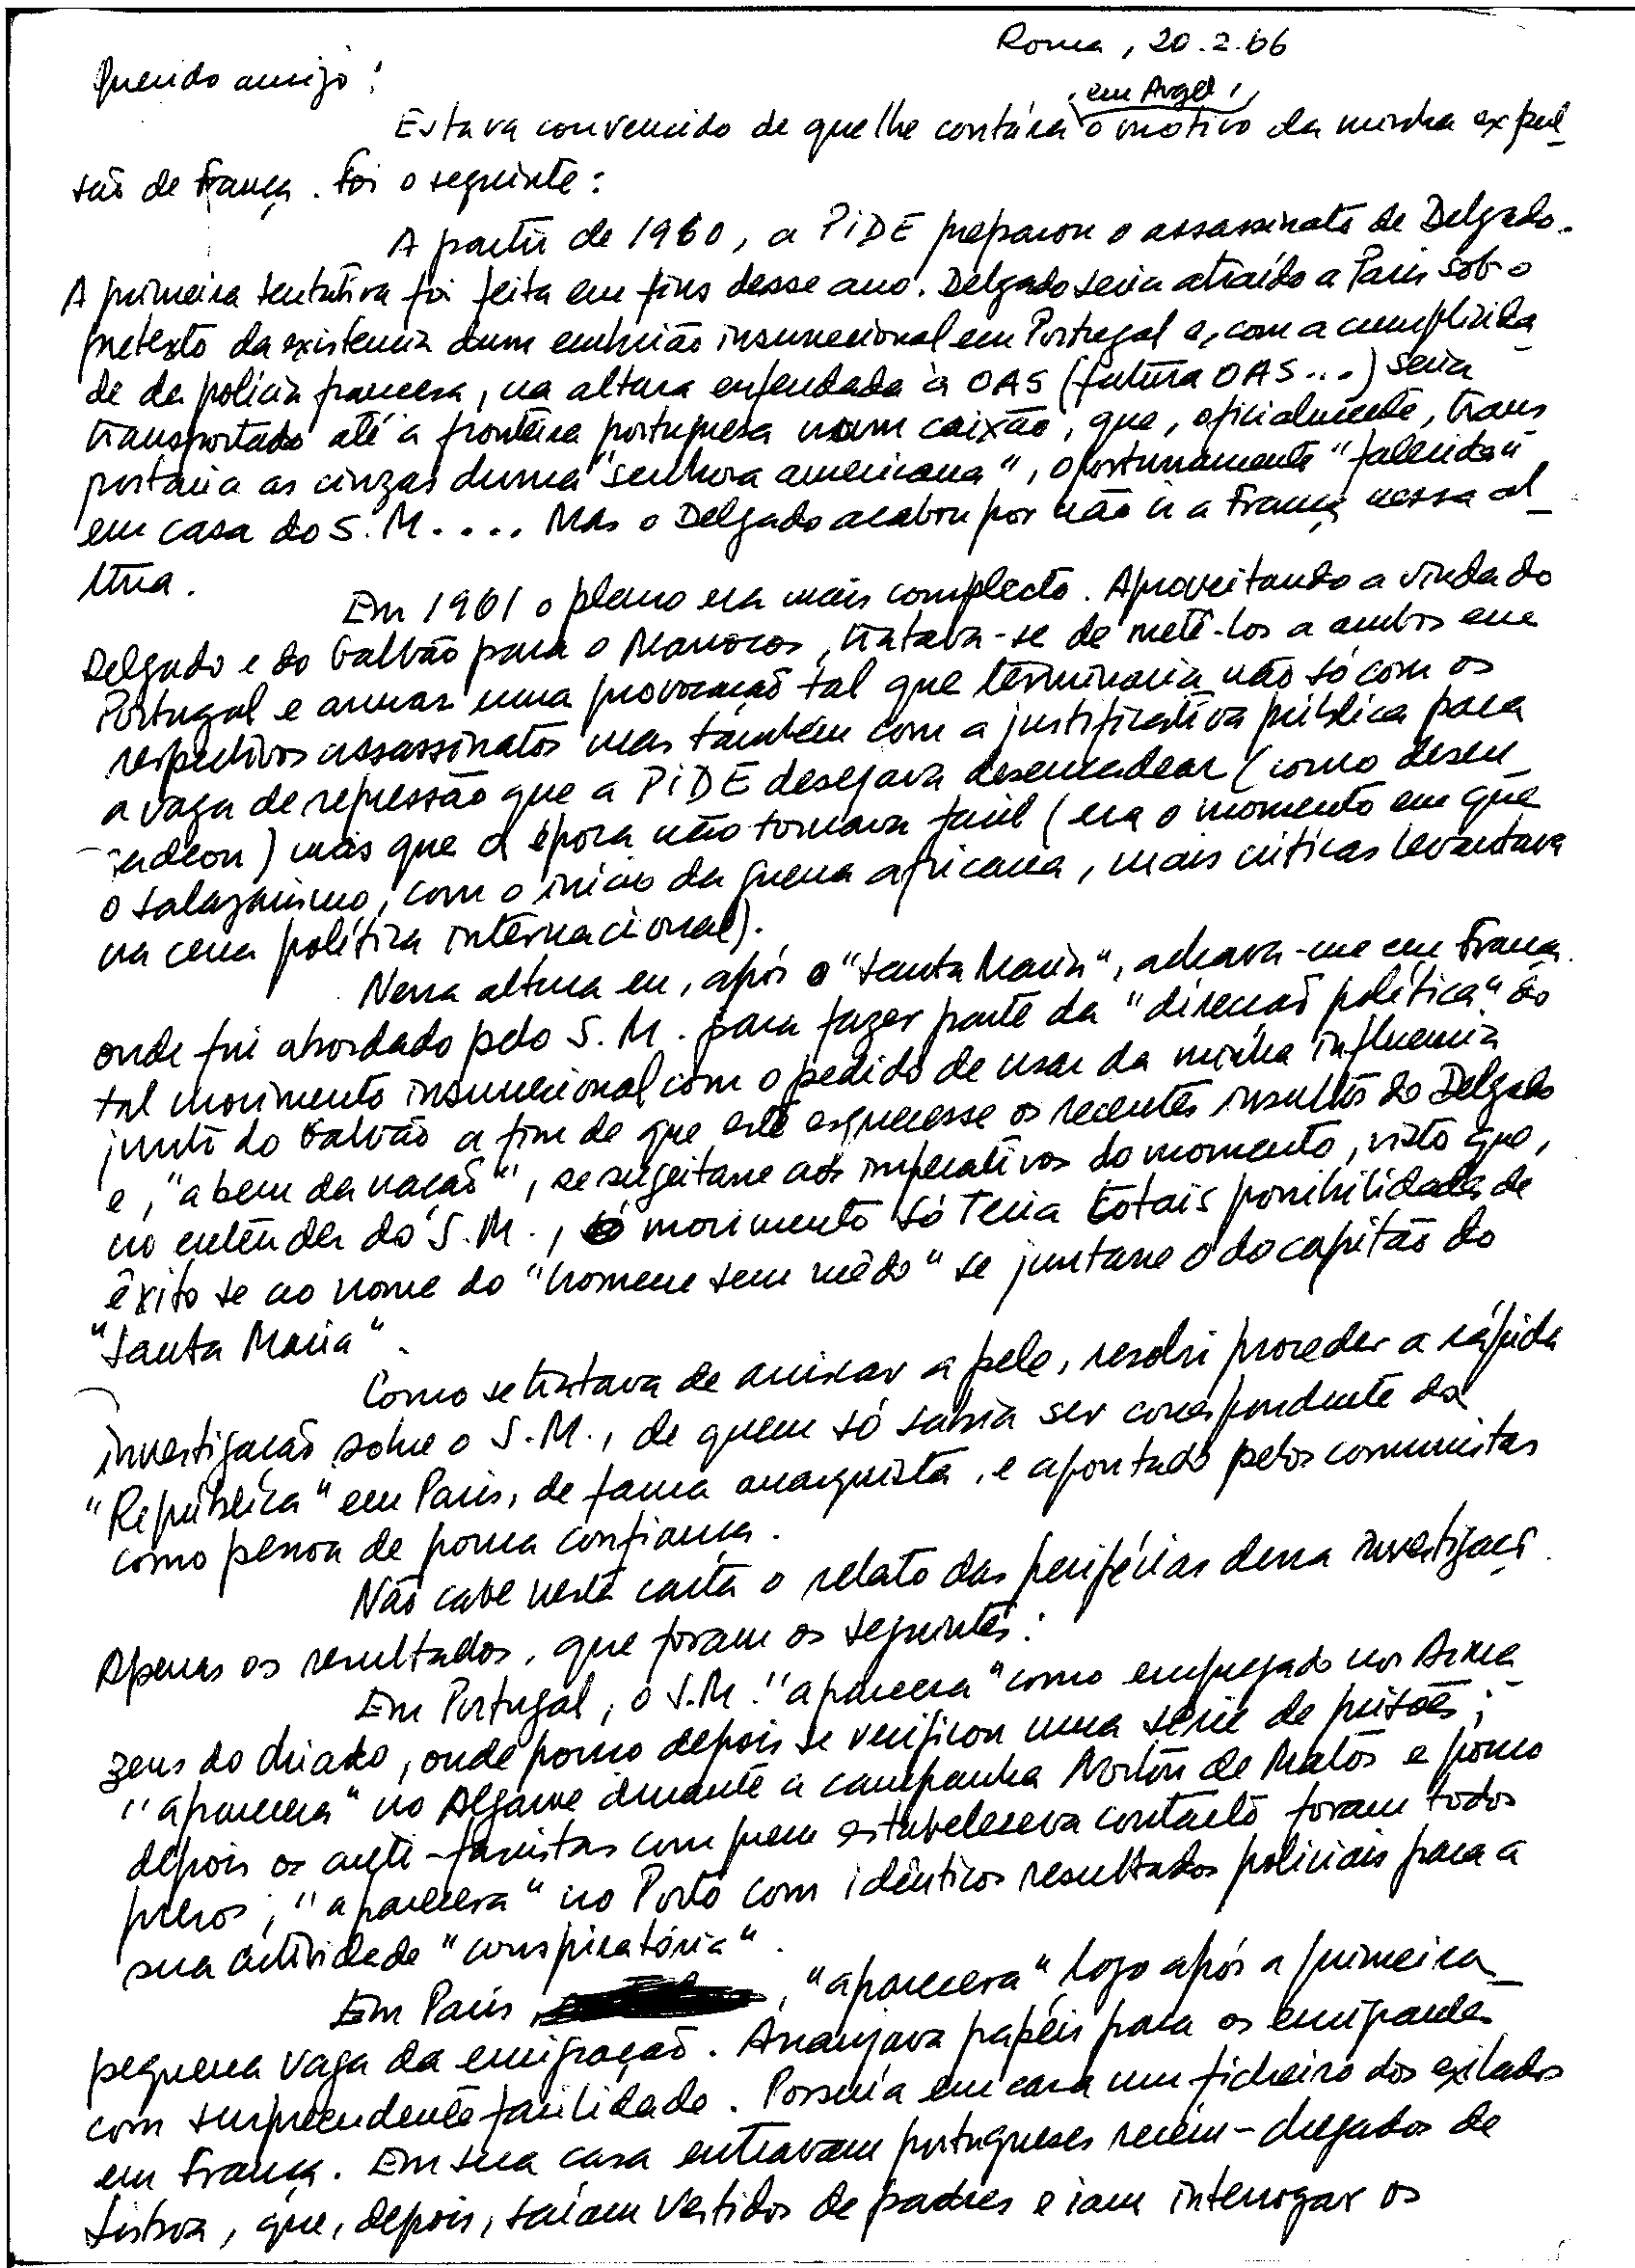 Roma, 20.2.66
Querido amigo:
, em Argel,
Estava convencido de que lhe contára o motivo da minha expul-
são de França. Foi o seguinte:
A partir de 1960, a PIDE preparou o assassinato de Delgado.
A primeira tentativa foi feita em fins desse ano. Delgado seria atraído a Paris sob o
pretexto da existencia dum embrião insurrecional em Portugal e, com a cumplicida-
de da polícia francesa, na altura enfeudada à OAS (futura OAS...) seria
transportado até à fronteira portuguesa num caixão, que, oficialmente, trans-
portaria as cinzas duma "senhora americana", oportunamente "falecida"
em casa do S.M.... Mas o Delgado acabou por não ir a França nessa al-
tura.
Em 1961 o plano era mais complecto. Aproveitando a vinda do
Delgado e do Galvão para o Marrocos, tratava-se de metê-los a ambos em
Portugal e armar uma provocação tal que terminaria não só com os
respectivos assassinatos mas também com a justificativa pública para
a vaga de repressão que a PIDE desejava desencadear (como desen-
cadeou) mas que a época não tornava facil (era o momento em que
o salazarismo, com o início da guerra africana, mais criticas levantava
na cena política internacional).
Nessa altura eu, após o "Santa Maria", achava-me em França
onde fui abordado pelo S.M. para fazer parte da "direcção política" do
tal movimento insurrecional com o pedido de usar da minha influencia
junto do Galvão a fim de que este esquecesse os recentes insultos do Delgado
e, "a bem da nação", se sugeitasse aos imperativos do momento, visto que,
no entender do S.M., o movimento só teria totais possibilidades de
êxito se ao nome do "homem sem mêdo" se juntasse o do capitão do
"Santa Maria".
Como se tratava de arriscar a pele, resolvi proceder a rápida
investigação sobre o S.M., de quem só sabia ser correspondente da
"República" em Paris, de fama anarquista, e apontado pelos comunistas
como pessoa de pouca confiança.
Não cabe nesta carta o relato das peripécias dessa investigação.
Apenas os resultados, que foram os seguintes:
Em Portugal, o S.M. "aparecera" como empregado nos Arma-
zens do Chiado, onde pouco depois se verificou uma série de prisões;
"aparecera" no Algarve durante a campanha Norton de Matos e pouco
depois os anti-fascistas com quem estabelecera contacto foram todos
presos; "aparecera" no Porto com idênticos resultados policiais para a
sua actividade "conspiratória".
Em Paris, "aparecera" logo após a primeira
pequena vaga da emigração. Arranjava papéis para os emigrantes
com surpreendente facilidade. Possuía em casa um ficheiro dos exilados
em França. Em sua casa entravam portugueses recém-chegados de
Lisboa, que, depois, saíam vestidos de padres e iam interrogar os